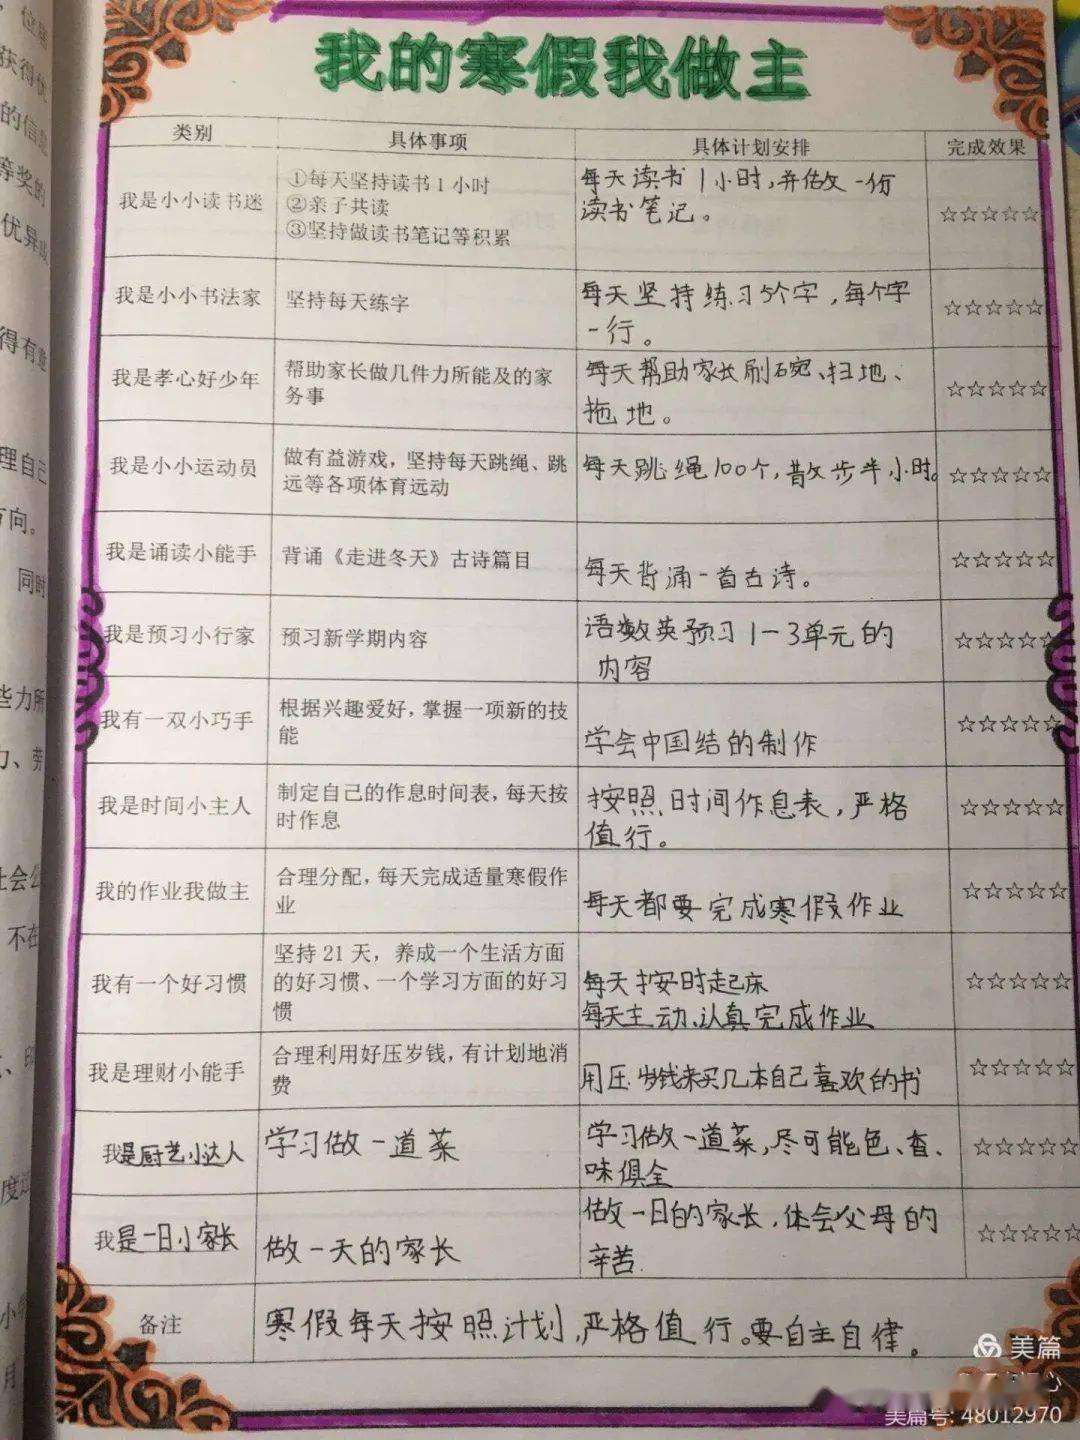 位
获得优
的信息
等奖的
优异
得有
理自己
方向。
同时
些力所
力、劳
社会公
不在
度过
小
月
我的寒假我做主
类别 具体事项 具体计划安排 完成效果
我是小小读书迷
①每天坚持读书1小时
②亲子共读
③坚持做读书笔记等积累
每天读书1小时,并做一份
读书笔记。
☆☆☆☆☆
我是小小书法家
坚持每天练字
每天坚持练习5个字，每个字
一行。
☆☆☆☆☆
我是孝心好少年
帮助家长做几件力所能及的家
务事
每天帮助家长刷碗、扫地、
拖地。
☆☆☆☆☆
我是小小运动员
做有益游戏，坚持每天跳绳、跳
远等各项体育远动
每天跳绳100个,散步半小时。
☆☆☆☆☆
我是诵读小能手
背诵《走进冬天》古诗篇目
每天背涌一首古诗。
☆☆☆☆☆
我是预习小行家
预习新学期内容
语数英预习1-3单元的
内容
☆☆☆☆☆
我有一双小巧手
根据兴趣爱好，掌握一项新的技
能
学会中国结的制作
☆☆☆☆☆
我是时间小主人
制定自己的作息时间表，每天按
时作息
按照时间作息表，严格
值行。
☆☆☆☆☆
我的作业我做主
合理分配，每天完成适量寒假作
业
每天都要完成寒假作业
☆☆☆☆☆
我有一个好习惯
坚持21天，养成一个生活方面
的好习惯、一个学习方面的好习
惯
每天按时起床
每天主动、认真完成作业
☆☆☆☆☆
我是理财小能手
合理利用好压岁钱，有计划地消
费
用压岁钱来买几本自己喜欢的书
☆☆☆☆☆
我是厨艺小达人
学习做一道菜
学习做一道菜,尽可能色、香、
味俱全
☆☆☆☆☆
我是一日小家长
做一天的家长
做一日的家长,体会父母的
辛苦.
☆☆☆☆☆
备注
寒假每天按照计划,严格值行。要自主自律。
美篇
美篇号: 48012970